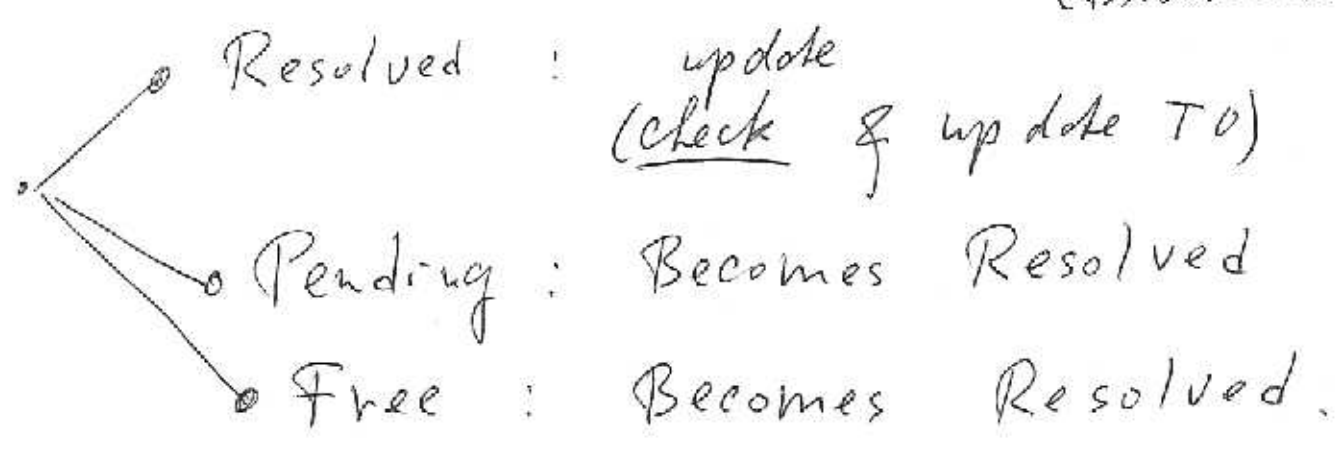 Resolved : update
(check & update TO)
Pending : Becomes Resolved
Free : Becomes Resolved.